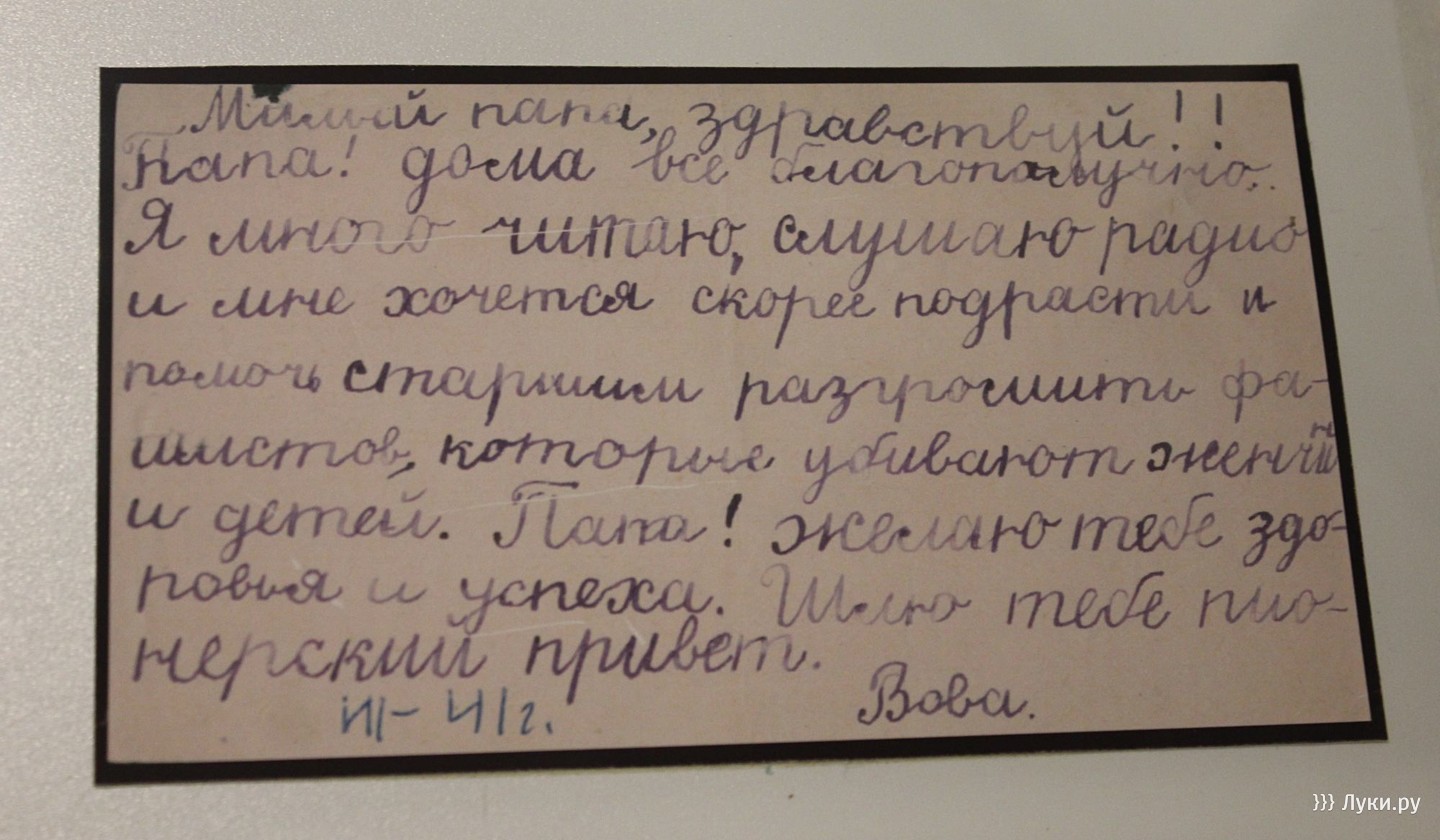 Милый папа, здравствуй!!
Папа! дома все благополучно.
Я много читаю, слушаю радио
и мне хочется скорее подрасти и
помочь старшим разгромить фа-
шистов, которые убивают женщин
и детей. Папа! желаю тебе здо-
ровья и успеха. Шлю тебе пио-
нерский привет.
41г. Вова.
}}} Луки.ру